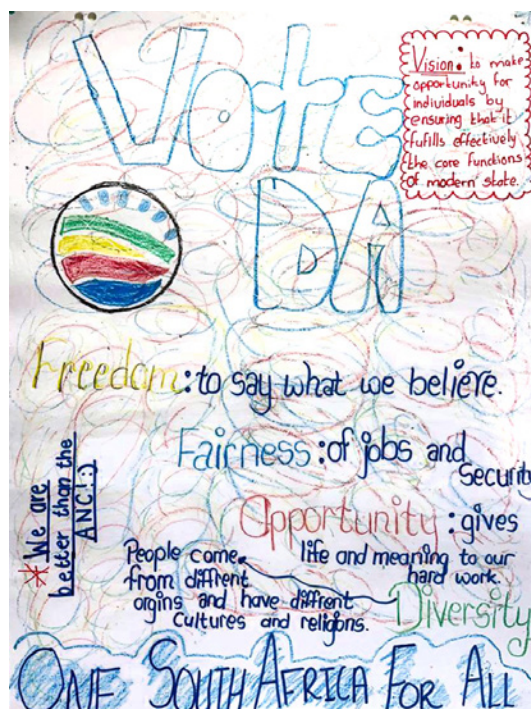 VOTE
DA
Vision: to make
opportunity for
individuals by
ensuring that it
fufills effectively
the core functions
of modern state.
Freedom: to say what we believe.
Fairness: of jobs and
Security
Opportunity: gives
life and meaning to our
hard work.
* We are
better than the
ANC! :)
Diversity
People come
from diffrent
orgins and have diffrent
Cultures and religions.
ONE SOUTH AFRICA FOR ALL